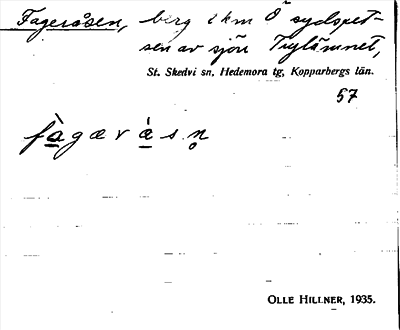 Fageråsen, berg 2 km Ö sydspet-
sen av sjön Trylämnet,
St. Skedvi sn, Hedemora tg, Kopparbergs län.
57
fà̲gævà̲sn̥
OLLE HILLNER, 1935.